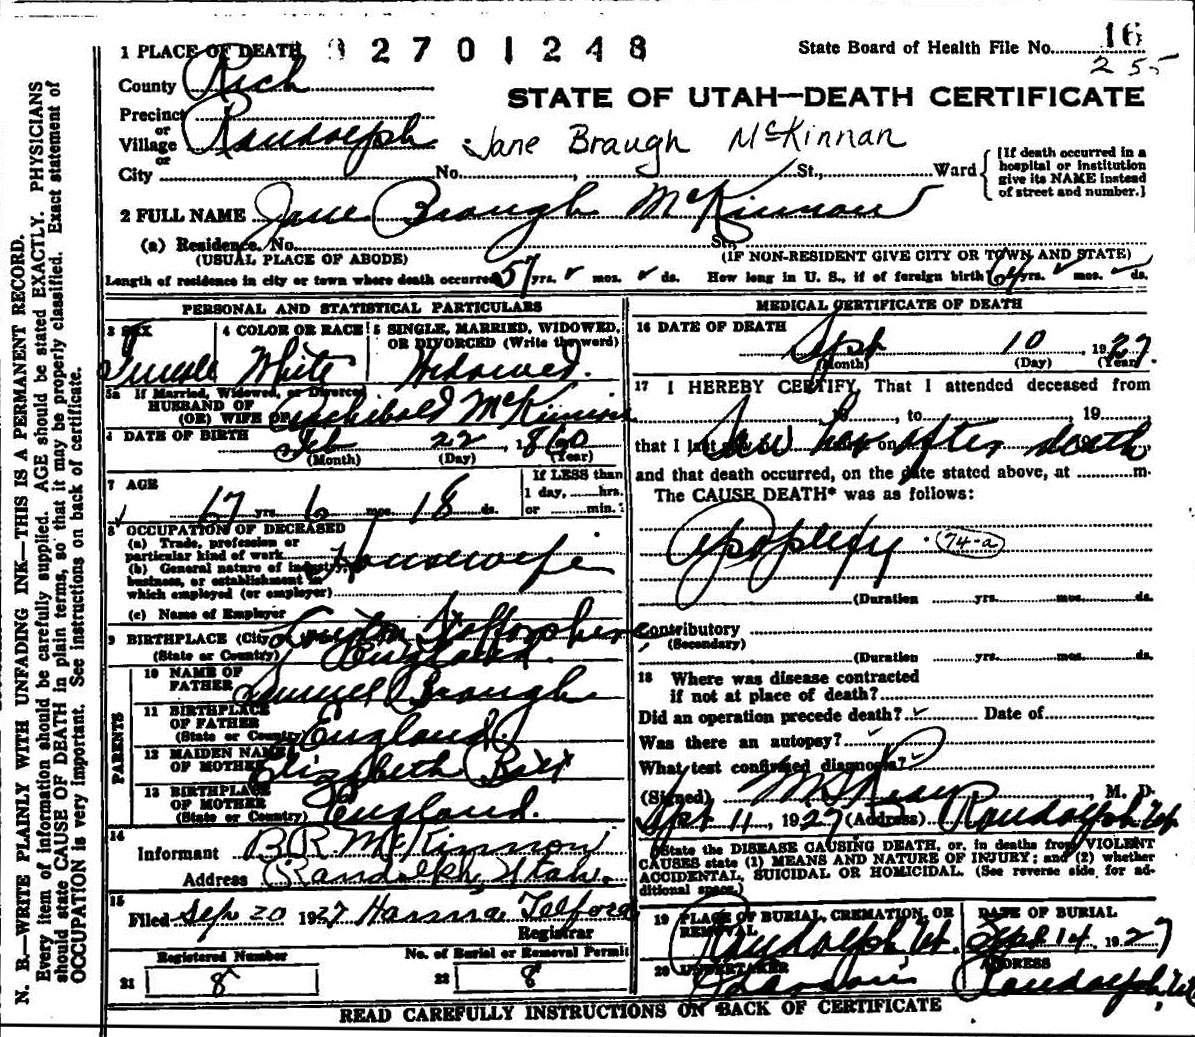 1 PLACE OF DEATH 2701248 State Board of Health File No. 16
255
County Rich
STATE OF UTAH—DEATH CERTIFICATE
Precinct
or
Village Randolph Jane Braugh McKinnan
or
City No. St., Ward [If death occurred in a hospital or institution give its NAME instead of street and number.]
2 FULL NAME Jane Brough McKinnon
(a) Residence. No. St.,
(USUAL PLACE OF ABODE) (IF NON-RESIDENT GIVE CITY OR TOWN AND STATE)
Length of residence in city or town where death occurred 57 yrs. mos. ds. How long in U. S., if of foreign birth 64 yrs. mos. ds.
PERSONAL AND STATISTICAL PARTICULARS
3 SEX 4 COLOR OR RACE 5 SINGLE, MARRIED, WIDOWED, OR DIVORCED (Write the word)
Female White Widowed.
5a If Married, Widowed, or Divorced
HUSBAND OF
(OR) WIFE OF Archibald McKinnon
6 DATE OF BIRTH Feb 22, 1860
(Month) (Day) (Year)
7 AGE If LESS than
67 yrs. 6 mos. 18 ds. 1 day, hrs.
or min.
8 OCCUPATION OF DECEASED
(a) Trade, profession or
particular kind of work Housewife
(b) General nature of industry,
business, or establishment in
which employed (or employer)
(c) Name of Employer
9 BIRTHPLACE (City or Town) Longton Staffordshire,
(State or Country) England.
PARENTS
10 NAME OF FATHER Samuel Brough
11 BIRTHPLACE OF FATHER
(State or Country) England.
12 MAIDEN NAME OF MOTHER Elizabeth Bott
13 BIRTHPLACE OF MOTHER
(State or Country) England.
14
Informant B.R. McKinnon
Address Randolph, Utah.
15
Filed Sep 20 1927 Hannna Telford
Registrar
Registered Number No. of Burial or Removal Permit
21 8 22 8
MEDICAL CERTIFICATE OF DEATH
16 DATE OF DEATH Sept 10, 1927.
(Month) (Day) (Year)
17 I HEREBY CERTIFY, That I attended deceased from
19 , to , 19
that I last saw her after death
and that death occurred, on the date stated above, at m.
The CAUSE DEATH* was as follows:
Apoplexy 74-a
(Duration yrs. mos. ds.
Contributory
(Secondary)
(Duration yrs. mos. ds.
18 Where was disease contracted
if not at place of death?
Did an operation precede death? Date of
Was there an autopsy?
What test confirmed diagnosis?
(Signed) , M. D.
Sept 11, 1927 (Address) Randolph Ut
*State the DISEASE CAUSING DEATH, or, in deaths from VIOLENT
CAUSES state (1) MEANS AND NATURE OF INJURY; and (2) whether
ACCIDENTAL, SUICIDAL OR HOMICIDAL. (See reverse side for ad-
ditional space.)
19 PLACE OF BURIAL, CREMATION, OR REMOVAL DATE OF BURIAL
Randolph Ut. Sept 14, 1927
20 UNDERTAKER ADDRESS
Randolph, Ut
READ CAREFULLY INSTRUCTIONS ON BACK OF CERTIFICATE
N. B.—WRITE PLAINLY WITH UNFADING INK—THIS IS A PERMANENT RECORD.
Every item of information should be carefully supplied. AGE should be stated EXACTLY. PHYSICIANS
should state CAUSE OF DEATH in plain terms, so that it may be properly classified. Exact statement of
OCCUPATION is very important. See instructions on back of certificate.